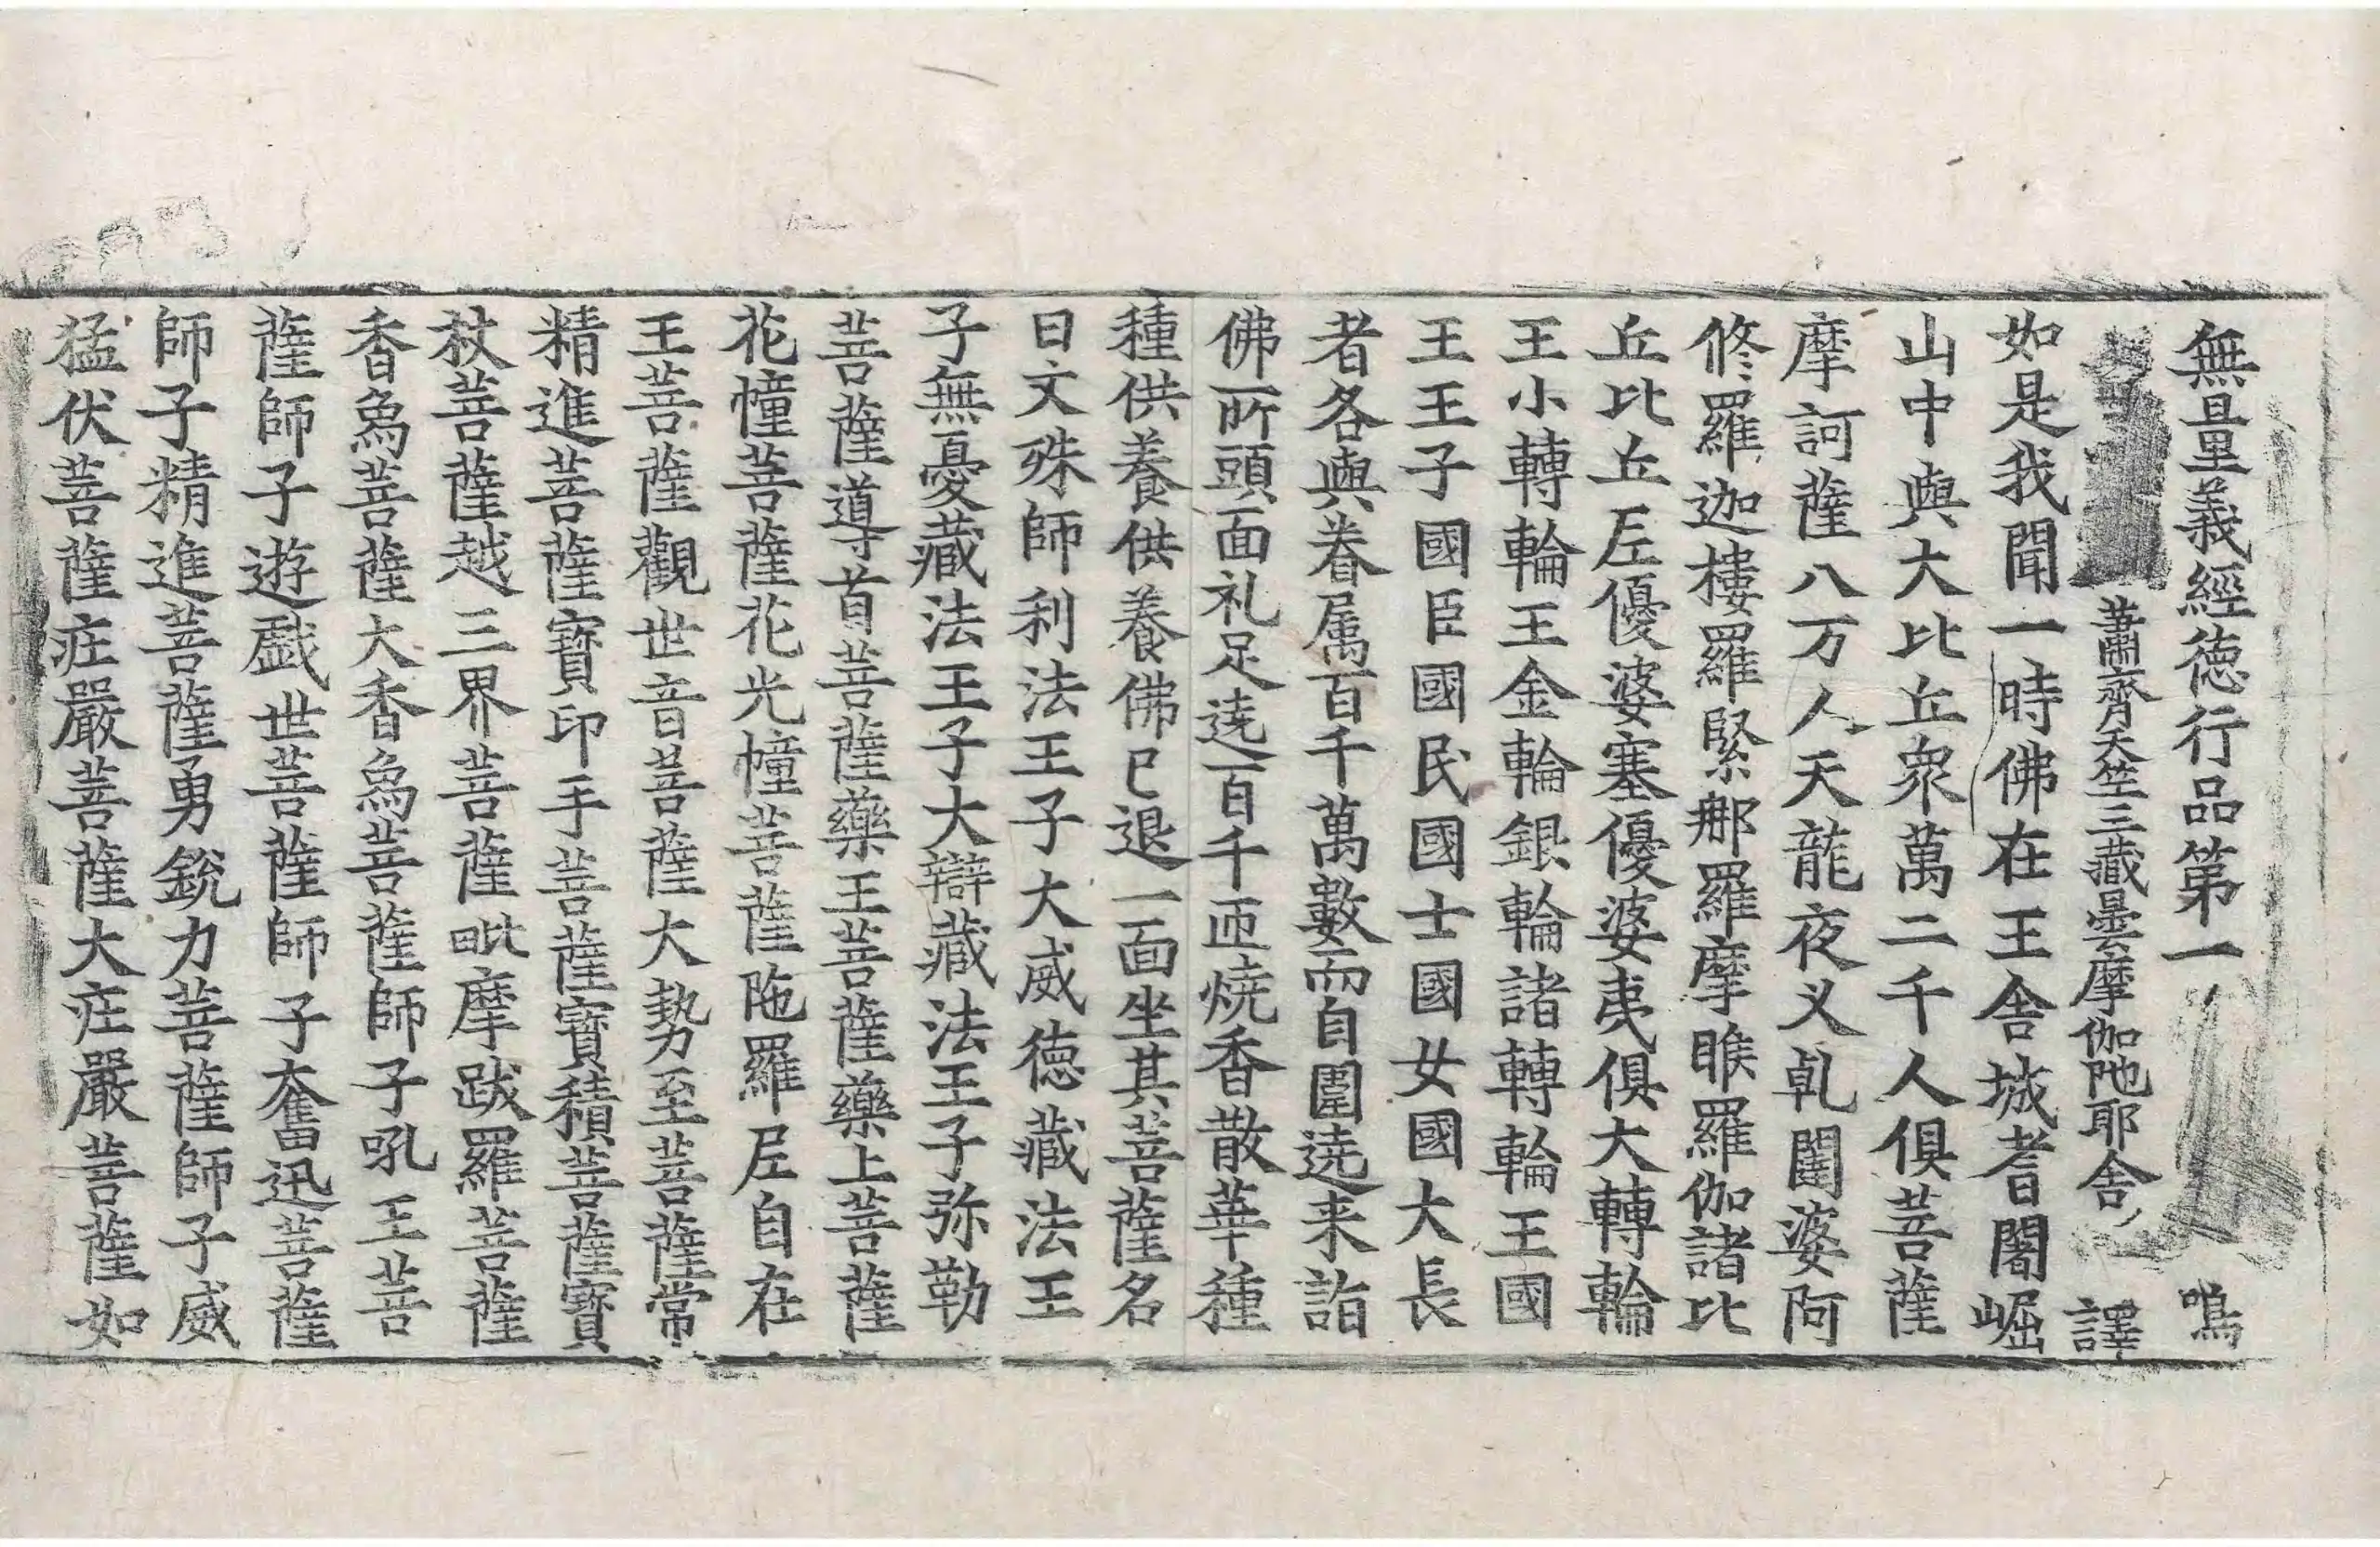 無量義經徳行品第一 鳴
蕭齊天竺三藏曇摩伽陁耶舍 譯
如是我聞一時佛在王舍城耆闍崛
山中與大比丘衆萬二千人俱菩薩
摩訶薩八万人天龍夜叉乹闥婆阿
修羅迦樓羅緊那羅摩睺羅伽諸比
丘比丘𡰱優婆塞優婆夷俱大轉輪
王小轉輪王金輪銀輪諸轉輪王國
王王子國臣國民國士國女國大長
者各與眷属百千萬數而自圍遶来詣
佛所頭面礼足遶百千匝燒香散華種
種供養供養佛已退一面坐其菩薩名
曰文殊師利法王子大威徳藏法王
子無憂藏法王子大辯藏法王子弥勒
菩薩導首菩薩藥王菩薩藥上菩薩
花幢菩薩花光幢菩薩陁羅𡰱自在
王菩薩觀世音菩薩大勢至菩薩常
精進菩薩寶印手菩薩寶積菩薩寶
杖菩薩越三界菩薩毗摩跋羅菩薩
香象菩薩大香象菩薩師子吼王菩
薩師子遊戯世菩薩師子奮迅菩薩
師子精進菩薩勇銳力菩薩師子威
猛伏菩薩庄嚴菩薩大庄嚴菩薩如